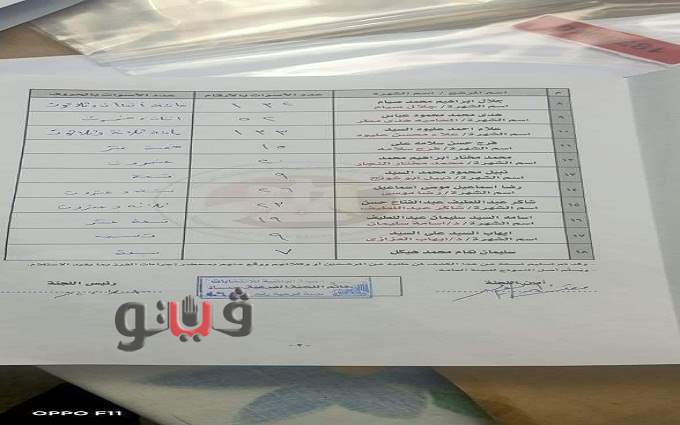 م
اسم المرشح / اسم الشهرة
عدد الأصوات بالأرقام
عدد الأصوات بالحروف
٨
جلال ابراهيم محمد صيام
اسم الشهرة / جلال صيام
١٣٢
مائة اثنان وثلاثون
٩
هدى محمد محمود عباس
اسم الشهرة / المحاميه هدى مطر
٥٢
اثنان وخمسون
١٠
علاء احمد عليوه السيد
اسم الشهرة / علاء محسن عليوه
١٣٣
مائة ثلاثة وثلاثون
١١
فرج حسن سلامه على
اسم الشهرة / فرج سلامه
١٥
خمسة عشر
١٢
محمد مختار ابراهيم محمد
اسم الشهرة / محمد مختار النجار
٢٠
عشرون
١٣
نبيل محمود محمد السيد
٩
تسعة
١٤
رضا اسماعيل موسى اسماعيل
اسم الشهرة / رضا موسى
٢٦
ستة وعشرون
١٥
شاكر عبداللطيف عبدالفتاح حسن
اسم الشهرة / شاكر عبداللطيف
٢٣
ثلاثة وعشرون
١٦
اسامه السيد سليمان عبداللطيف
اسم الشهرة / د/اسامة سليمان
١٩
تسعة عشر
١٧
ايهاب السيد على السيد
اسم الشهرة / د/ايهاب العزازى
٩
تسعة
١٨
سليمان تمام محمد هيكل
٧
سبعة
أمين اللجنة
رئيس اللجنة
ڤيتو
-٢-
OPPO F11